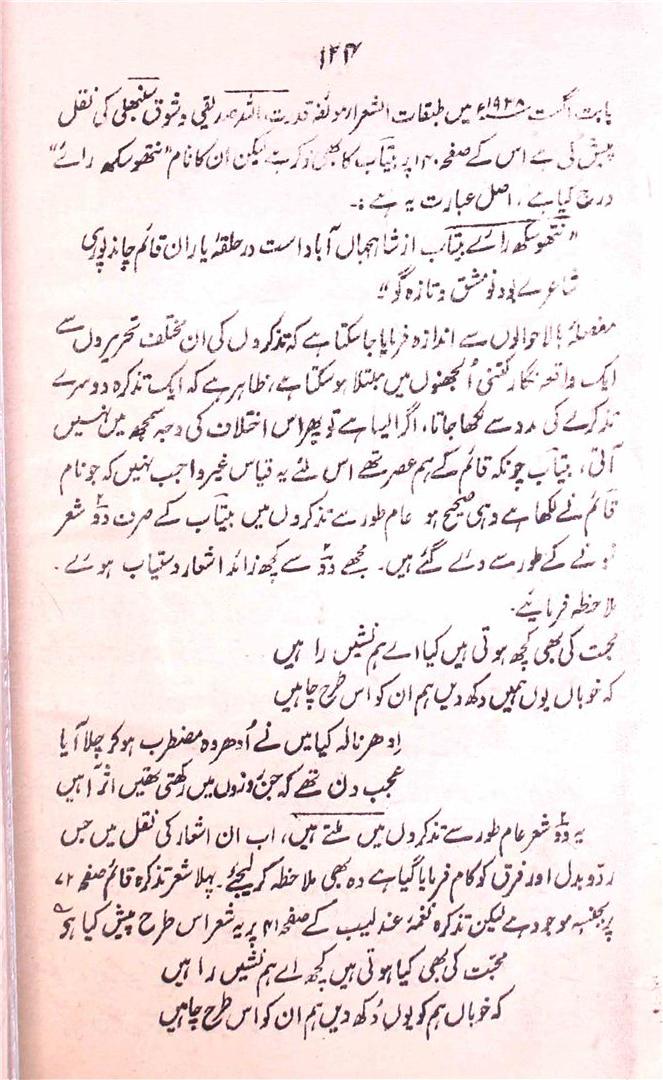 ۱۲۴
بابت اگست ۱۹۳۸ء میں طبقات الشعراء مولفہ قدرت اللہ صدیقی و شوق سنبھلی کی نقل
پیش کی ہے اس کے صفحہ ۱۴۰ پر بیتاب کا بھی ذکر ہے لیکن ان کا نام "نتھو سکھ رائے"
درج کیا ہے، اصل عبارت یہ ہے :۔
"نتھو سکھ رائے بیتاب از شاہجہاں آباد است در حلقۂ یاران قائم چاندپوری
شاعرے بود نو مشق و تازہ گو"
مفصلۂ بالا حوالوں سے اندازہ فرمایا جا سکتا ہے کہ تذکروں کی ان مختلف تحریروں سے
ایک واقعہ نگار کتنی اُلجھنوں میں مبتلا ہو سکتا ہے، ظاہر ہے کہ ایک تذکرہ دوسرے
تذکرے کی مدد سے لکھا جاتا، اگر ایسا ہے تو پھر اس اختلاف کی وجہ سمجھ میں نہیں
آتی، بیتاب چونکہ قائم کے ہم عصر تھے اس لئے یہ قیاس غیر واجب نہیں کہ جو نام
قائم نے لکھا ہے وہی صحیح ہو عام طور سے تذکروں میں بیتاب کے صرف دو شعر
نمونے کے طور سے دئے گئے ہیں۔ مجھے دو سے کچھ زائد اشعار دستیاب ہوئے۔
ملاحظہ فرمائیے۔
محبت کی بھی کچھ ہوتی ہیں کیا اے ہم نشیں را ہیں
کہ خوباں یوں ہمیں دکھ دیں ہم ان کو اس طرح چاہیں
اِدھر نالہ کیا میں نے اُدھر وہ مضطرب ہو کر چلا آیا
عجب دن تھے کہ جن دنوں میں رکھتی تھیں اثر آہیں
یہ دو شعر عام طور سے تذکروں میں ملتے ہیں، اب ان اشعار کی نقل میں جس
ردّ و بدل اور فرق کو کام فرمایا گیا ہے وہ بھی ملاحظہ کر لیجئے۔ پہلا شعر تذکرہ قائم صفحہ ۷۲
پر بجنسہ موجود ہے لیکن تذکرہ نغمۂ عندلیب کے صفحہ ۴۱ پر یہ شعر اس طرح پیش کیا ہے
محبّت کی بھی کیا ہوتی ہیں کچھ اے ہم نشیں را ہیں
کہ خوباں ہم کو یوں دُکھ دیں ہم ان کو اس طرح چاہیں